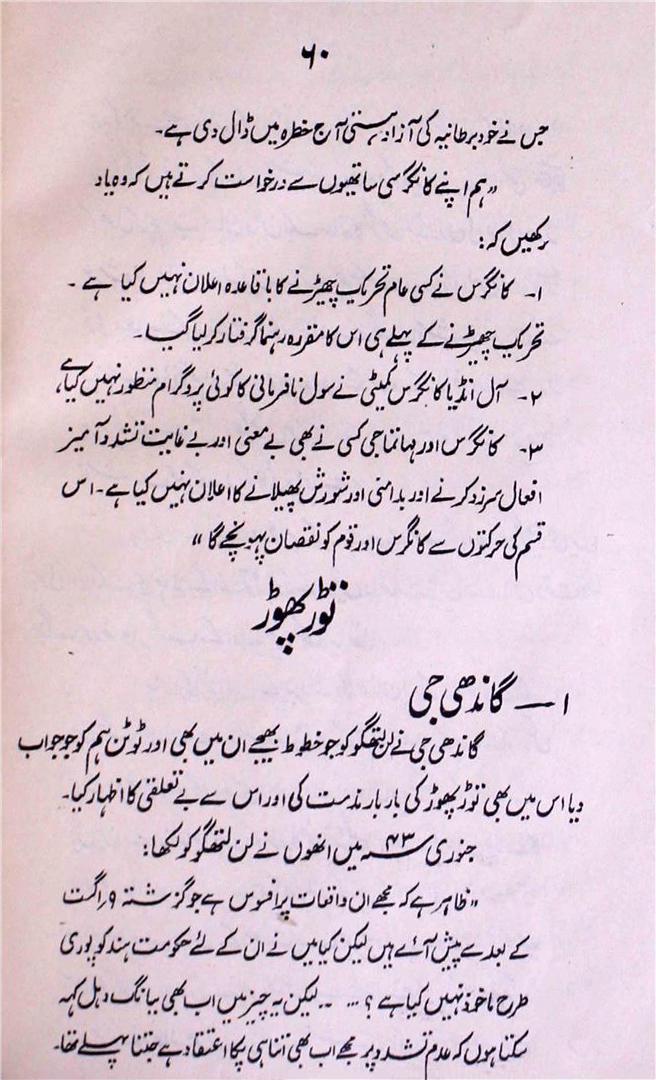 ۶۰
جس نے خود برطانیہ کی آزاد ہستی آج خطرہ میں ڈال دی ہے۔
”ہم اپنے کانگرسی ساتھیوں سے درخواست کرتے ہیں کہ وہ یاد
رکھیں کہ:
۱۔ کانگرس نے کسی عام تحریک چھیڑنے کا باقاعدہ اعلان نہیں کیا ہے۔
تحریک چھیڑنے کے پہلے ہی اس کا مقررہ رہنما گرفتار کر لیا گیا۔
۲۔ آل انڈیا کانگرس کمیٹی نے سول نافرمانی کا کوئی پروگرام منظور نہیں کیا ہے،
۳۔ کانگرس اور مہاتما جی کسی نے بھی بے معنی اور بے غایت تشدد آمیز
افعال سرزد کرنے اور بدامنی اور شورش پھیلانے کا اعلان نہیں کیا ہے۔ اس
قسم کی حرکتوں سے کانگرس اور قوم کو نقصان پہونچے گا“
توڑ پھوڑ
۱ — گاندھی جی
گاندھی جی نے لن لتھگو کو جو خطوط بھیجے ان میں بھی اور ٹوٹن ہم کو جو جواب
دیا اس میں بھی توڑ پھوڑ کی بار بار مذمت کی اور اس سے بے تعلقی کا اظہار کیا۔
جنوری ۴۳ء میں انھوں نے لن لتھگو کو لکھا:
”ظاہر ہے کہ مجھے ان واقعات پر افسوس ہے جو گزشتہ ۹ر اگست
کے بعد سے پیش آئے ہیں لیکن کیا میں نے ان کے لئے حکومت ہند کو پوری
طرح ماخوذ نہیں کیا ہے؟ ... .. لیکن یہ چیز میں اب بھی ببانگ دہل کہہ
سکتا ہوں کہ عدم تشدد پر مجھے اب بھی اتنا ہی پکا اعتقاد ہے جتنا پہلے تھا۔